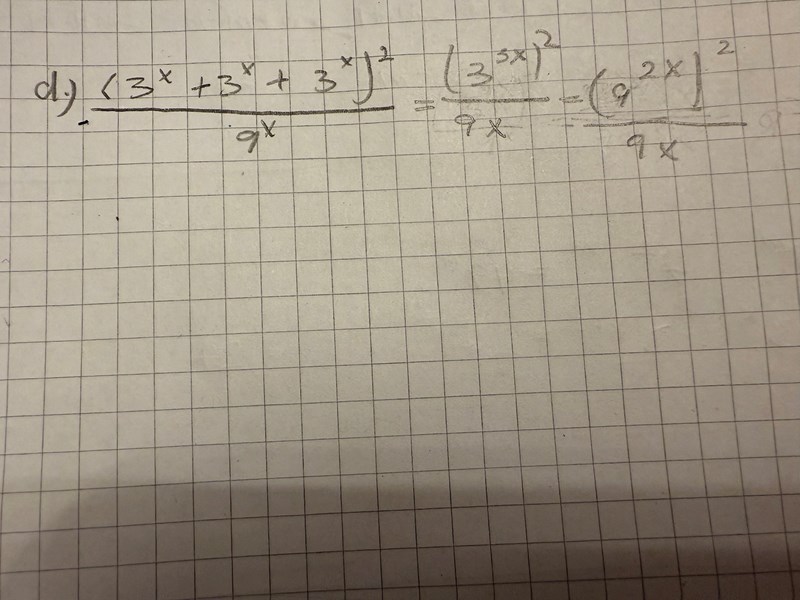 d.) (3^x + 3^x + 3^x)^2 / 9^x = (3^{3x})^2 / 9x = (9^{2x})^2 / 9x